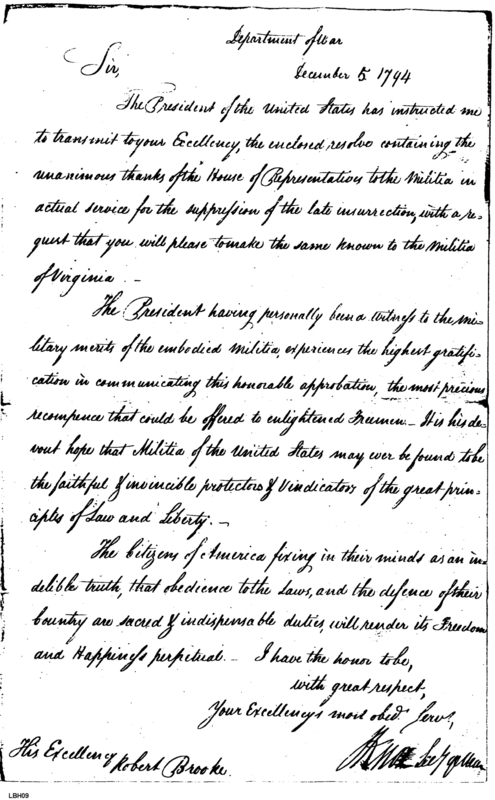 Department of War
Sir,
December 5 1794
The President of the United States has instructed me
to transmit to your Excellency, the enclosed resolve containing the
unanimous thanks of the House of Representatives to the Militia in
actual service for the suppression of the late insurrection, with a re-
quest that you will please to make the same known to the Militia
of Virginia. -
The President having personally been a Witness to the mi-
litary merits of the embodied Militia, experiences the highest gratifi-
cation in communicating this honorable approbation, the most precious
recompence that could be offered to enlightened Freemen - It is his de-
vout hope that Militia of the United States may ever be found to be
the faithful & invincible protectors & Vindicators of the great prin-
ciples of Law and Liberty. -
The Citizens of America fixing in their minds as an in-
delible truth, that obedience to the Laws, and the defence of their
Country are sacred & indispensable duties, will render its Freedom
and Happiness perpetual. - I have the honor to be,
with great respect,
Your Excellency's most obed. Serv.,
HKnox Secy of War
His Excellency
Robert Brooke.
LBH09